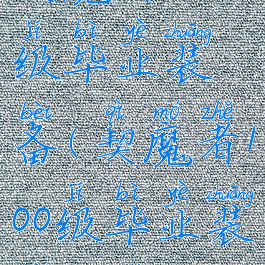 jí bì yè zhuāng
级毕业装
bèi qì mó zhě
备(契魔者1
jí bì yè zhuāng
00级毕业装